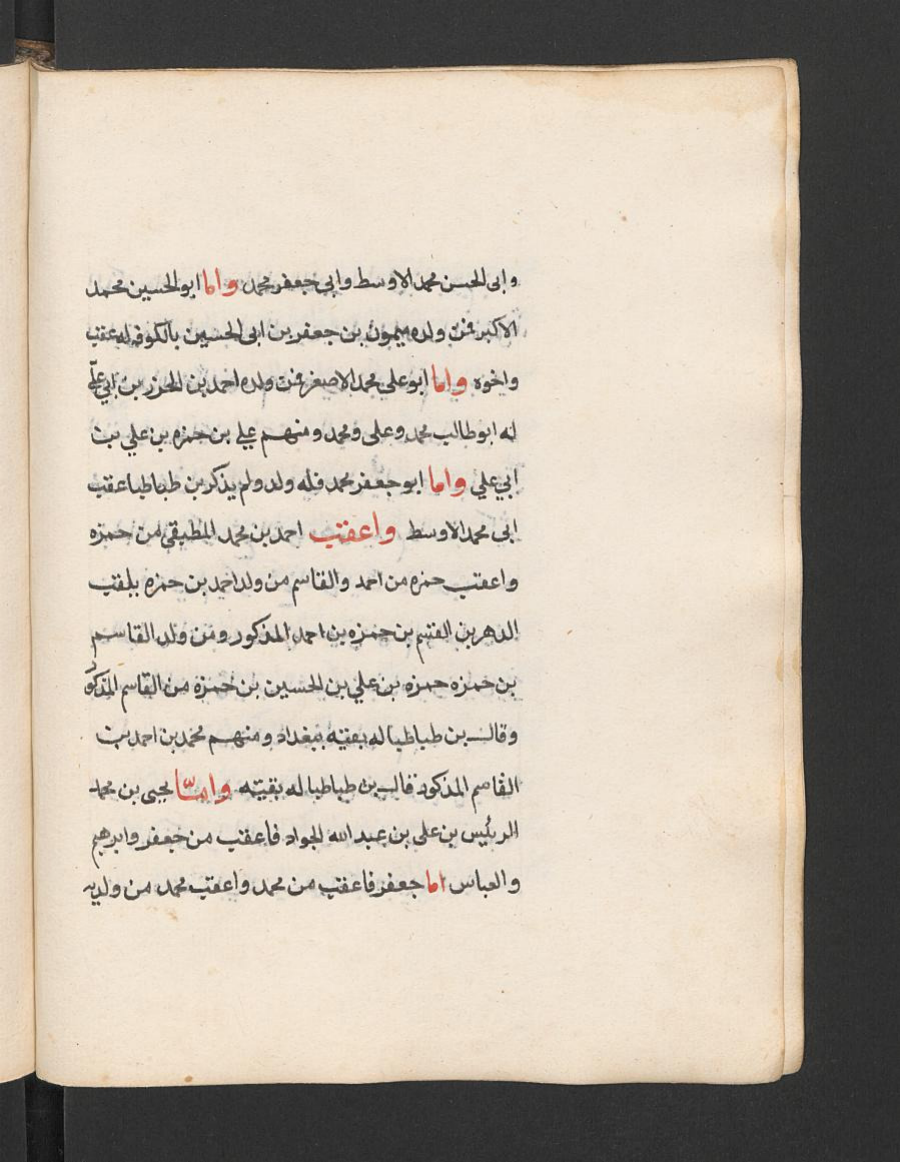 وابى الحسن محمد الاوسط وابي جعفر محمد واما ابو الحسين محمد
الاكبر فمن ولده ميمون بن جعفر بن ابى الحسين بالكوفه له عقب
واخوه واما ابو على محمد الاصغر فمن ولده احمد بن الحرز بن ابي علّي
له ابو طالب محمد وعلى ومحمد ومنهم علي بن حمزه بن علي بن
ابي علي واما ابو جعفر محمد فله ولد ولم يذكر بن طباطبا عقب
ابى محمد الاوسط واعقب احمد بن محمد المطبقي من حمزه
واعقب حمزه من احمد والقاسم من ولد احمد بن حمزه يلقب
الدهر بن القسم بن حمزه بن احمد المذكور ومن ولد القاسم
بن حمزه حمزه بن علي بن الحسين بن حمزة من القاسم المذكور
وقال بن طباطبا له بقيه ببغداد ومنهم محمد بن احمد بن
القاسم المذكور قال بن طباطبا له بقيته وامّا يحيى بن محمد
الرئيس بن على بن عبد الله الجواد فاعقب من جعفر وابرهيم
والعباس اما جعفر فاعقب من محمد واعقب محمد من ولديه